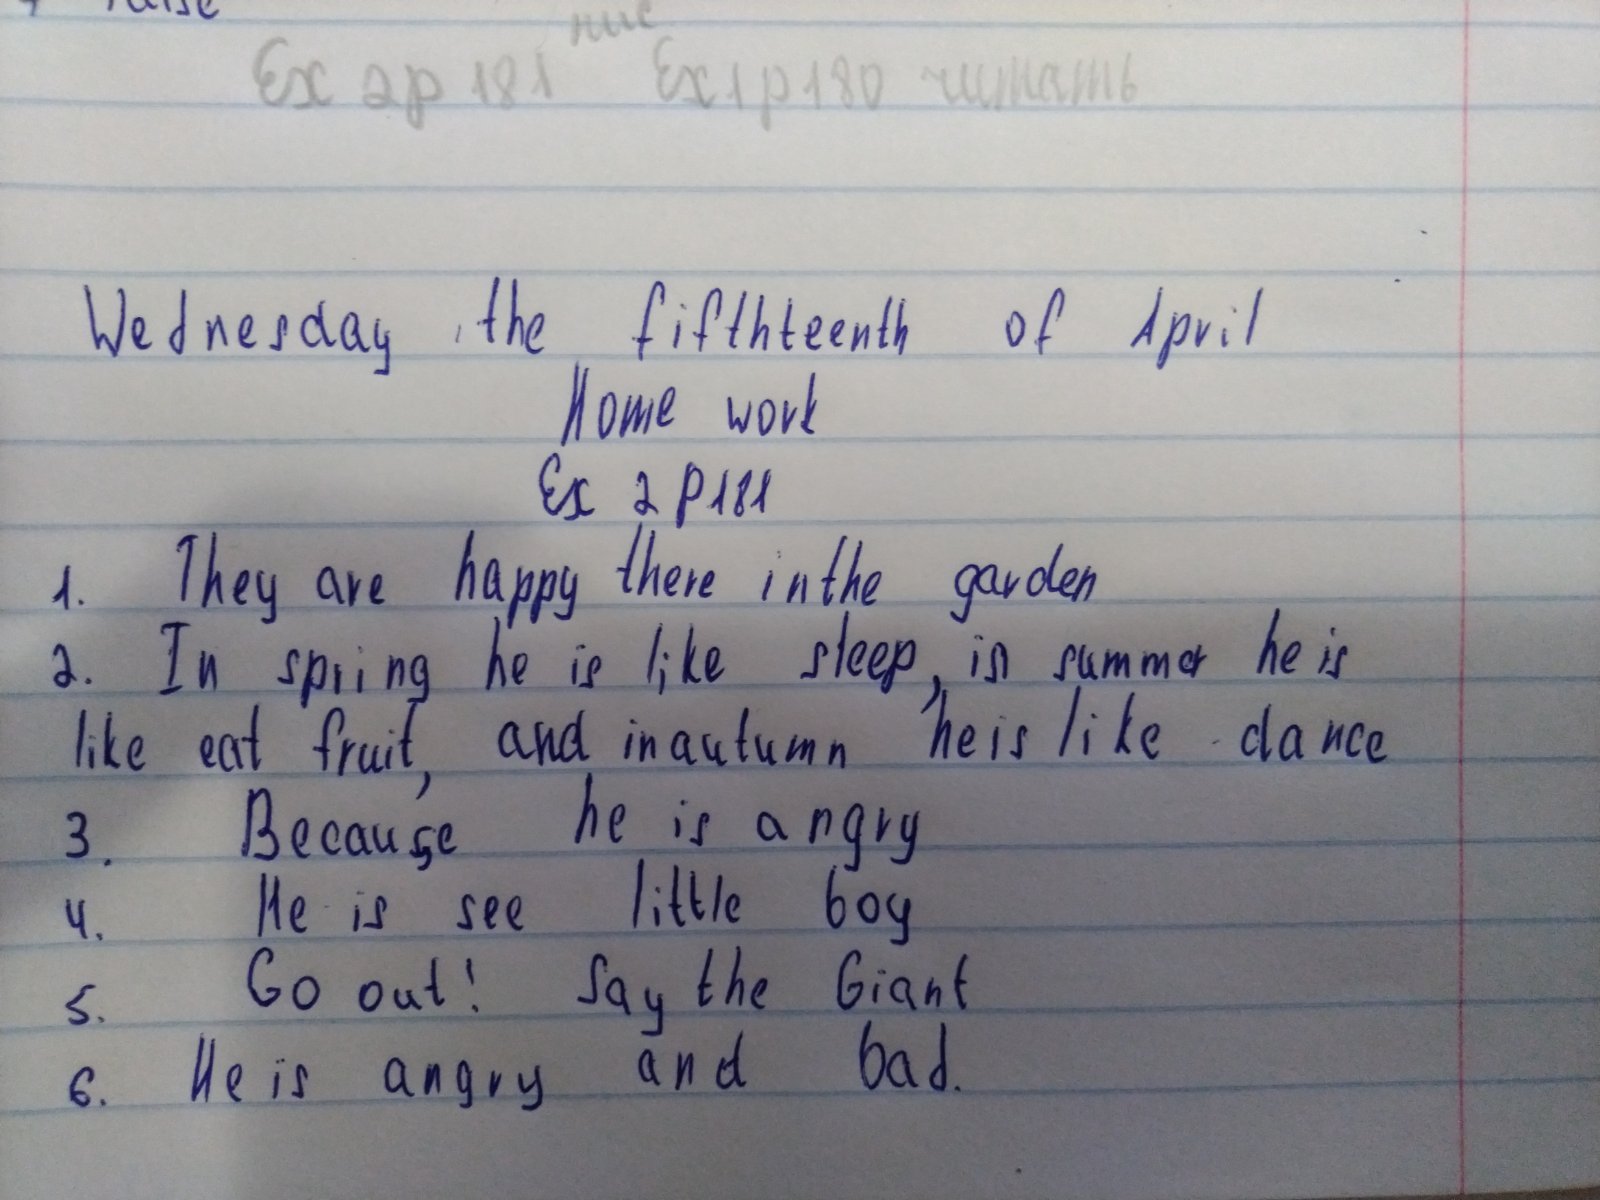 raise
Ex 2 p 181 Ex 1 p 180 читать
Wednesday, the fifthteenth of April
Home work
Ex 2 P 181
1. They are happy there in the garden
2. In spring he is like sleep, in summer he is
like eat fruit, and in autumn he is like dance
3. Because he is angry
4. He is see little boy
5. Go out! Say the Giant
6. He is angry and bad.